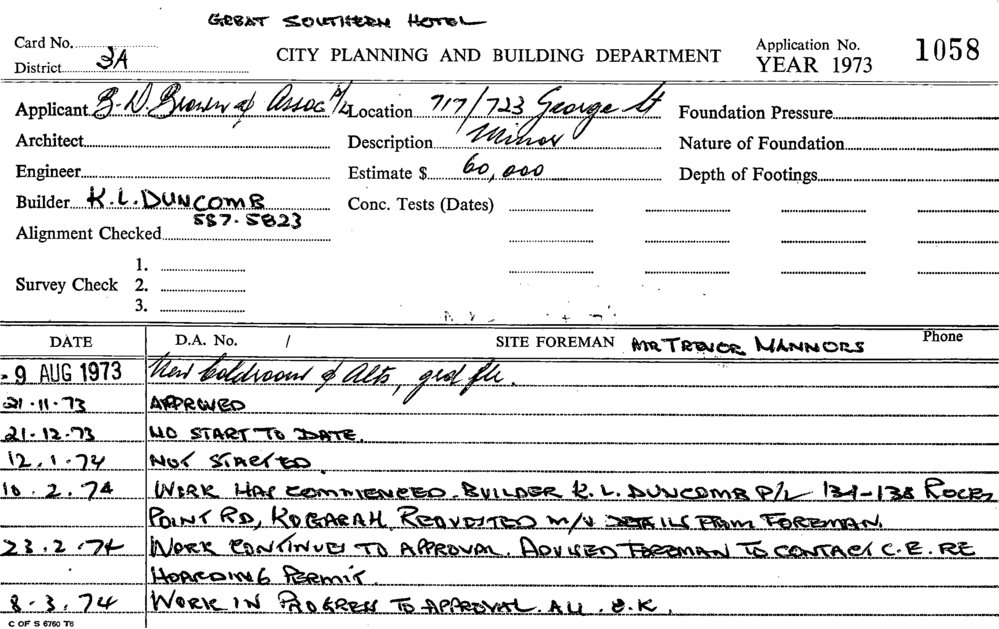 GREAT SOUTHERN HOTEL
Card No.
District 3A
CITY PLANNING AND BUILDING DEPARTMENT
Application No. 1058
YEAR 1973
Applicant B.D. Brown & Assoc P/L Location 717/723 George St Foundation Pressure
Architect Description Minor Nature of Foundation
Engineer Estimate $ 60,000 Depth of Footings
Builder K.L. DUNCOMB Conc. Tests (Dates)
587-5823
Alignment Checked
1.
Survey Check 2.
3.
DATE D.A. No. / SITE FOREMAN MR TREVOR MANNORS Phone
-9 AUG 1973 New Coldroom & Alts, grd flr.
21-11-73 APPROVED
21-12-73 NO START TO DATE.
12.1.74 NOT STARTED.
10.2.74 WORK HAS COMMENCED. BUILDER K.L. DUNCOMB P/L 134-138 ROCKY
POINT RD, KOGARAH, REQUESTED M/V DETAILS FROM FOREMAN.
23.2.74 WORK CONTINUES TO APPROVAL. ADVISED FOREMAN TO CONTACT C.E. RE
HOARDING PERMIT.
8-3.74 WORK IN PROGRESS TO APPROVAL. ALL O.K.
C OF S 6760 T6